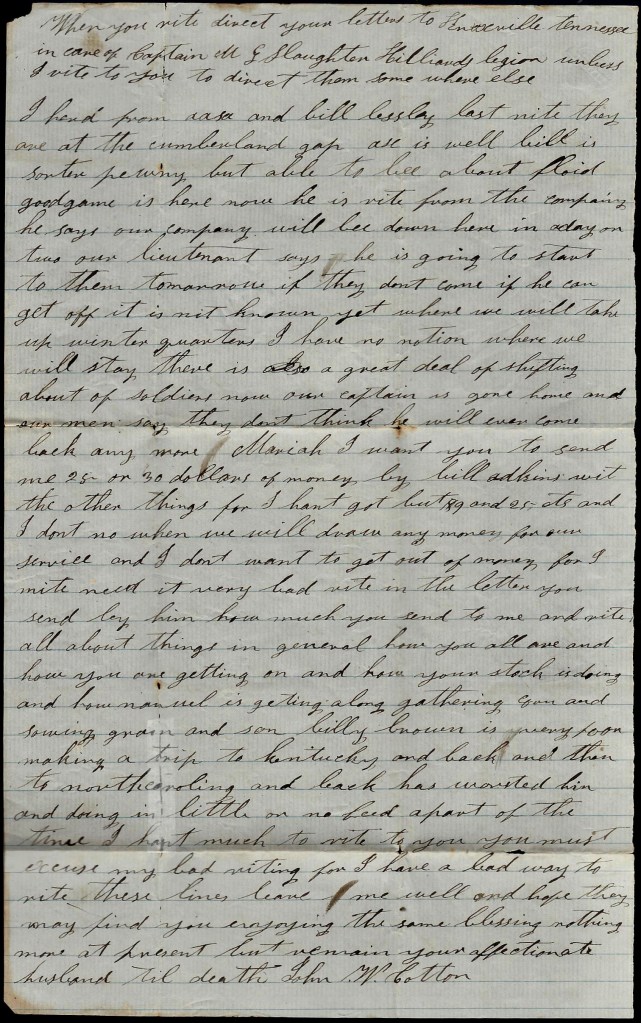 When you rite direct your letters to Knoxville tennessee
in care of Captain M G Slaughter Hilliards legion unless
I rite to you to direct them some where else
I herd from asa and bill lessley last nite they
are at the cumberland gap ase is well bill is
sorter pewny but able to bee about floid
goodgame is here now he is rite from the company
he says our company will bee down here in aday or
two our lieutenant says he is going to start
to them tomarrow if they dont come if he can
get off it is not known yet where we will take
up winter quarters I have no notion where we
will stay there is also a great deal of shifting
about of soldiers now our captain is gone home and
our men say they dont think he will ever come
back any more Mariah I want you to send
me 25- or 30 dollars of money by bill adkins wit
the other things for I hant got but $9 and 25- cts and
I dont no when we will draw any money for our
service and I dont want to get out of money for I
mite need it very bad rite in the letter you
send by him how much you send to me and rite
all about things in general how you all are and
how you are getting on and how your stock is doing
and how nanuel is geting along gathering corn and
sowing grain and son billy brown is very poor
making a trip to kentucky and back and then
to northcaroling and back has worsted him
and doing in little or no feed apart of the
time I hant much to rite to you you must
excuse my bad riting for I have a bad way to
rite these lines leave me well and hope they
may find you enjoying the same blessing nothing
more at present but remain your affectionate
husband til death John W. Cotton